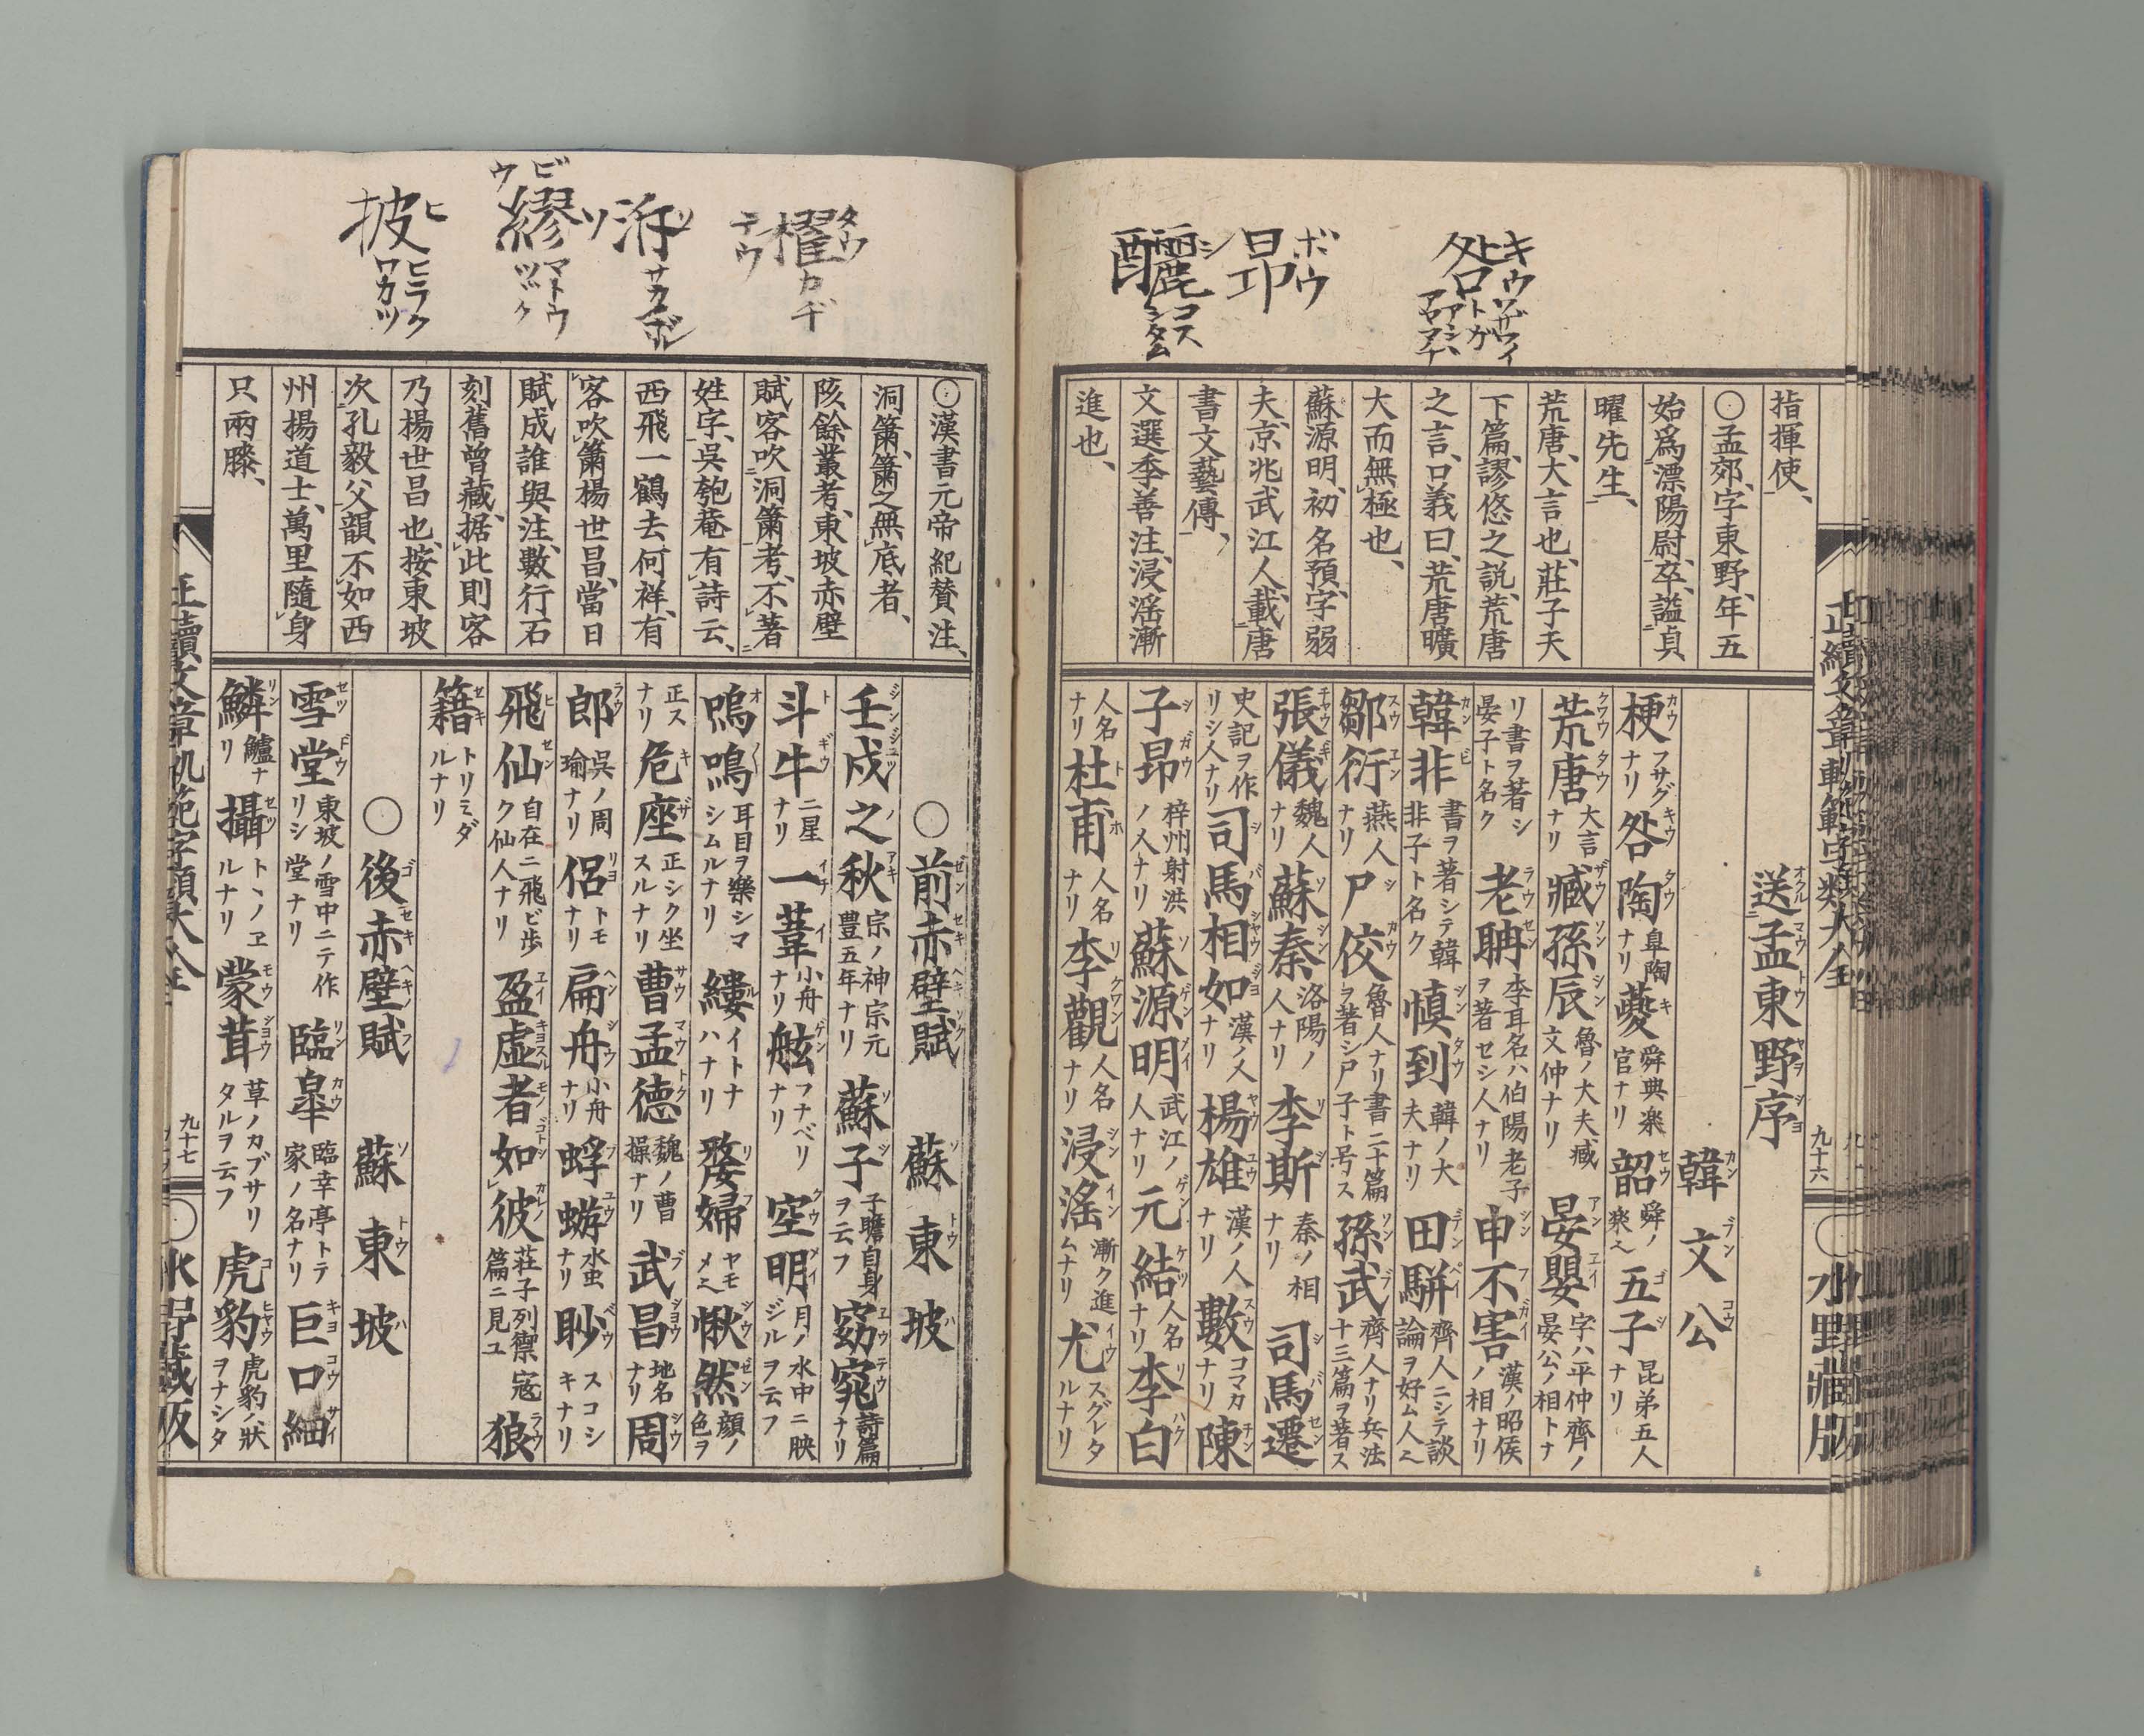 咎 キウ ワザワイ トガ
昴 ボウ
釃 シ コス シタム
指揮使、
○孟郊、字東野、年五
始爲漂陽尉、卒、謚貞
曜先生、
荒唐、大言也、莊子天
下篇、謬悠之説、荒唐
之言、口義曰、荒唐曠
大而無極也、
蘇源明、初名預、字弱
夫、京兆武江人、載唐
書文藝傳、
文選季善注、浸滛漸
進也、
送孟東野序
韓文公
梗 フサグナリ 咎 陶 皐陶ナリ 夔 舜典楽官ナリ 韶 舜ノ楽 五子 昆弟五人ナリ
荒唐 大言ナリ 臧孫辰 魯ノ大夫臧文仲ナリ 晏嬰 字ハ平仲齊ノ晏公ノ相トナ
リ書ヲ著シ晏子ト名ク 老聃 李耳名ハ伯陽老子ヲ著セシ人ナリ 申不害 漢ノ昭侯ノ相ナリ
韓非 書ヲ著シテ韓非子ト名ク 慎到 韓ノ大夫ナリ 田駢 齊人ニシテ談論ヲ好ム人
鄒衍 燕人ナリ 尸佼 魯人ナリ書二十篇ヲ著シ尸子ト号ス 孫武 齊人ナリ兵法十三篇ヲ著ス
張儀 魏人ナリ 蘇秦 洛陽ノ人ナリ 李斯 秦ノ相ナリ 司馬遷
史記ヲ作リシ人ナリ 司馬相如 漢ノ人ナリ 楊雄 漢ノ人ナリ 數 コマカナリ 陳
子昴 梓州射洪ノ人ナリ 蘇源明 武江ノ人ナリ 元結 人名ナリ 李白
人名ナリ 杜甫 人名ナリ 李觀 人名ナリ 浸滛 漸ク進ムナリ 尤 スグレタルナリ
九十六
水野藏版
櫂 タウ テウ カヂ
泝 ソ サカノボル
繆 ビウ マトウ ツヅク
披 ヒ ヒラク ワカツ
○漢書元帝紀賛注、
洞簫、簫之無底者、
陔餘叢考、東坡赤壁
賦、客吹洞簫考、不著
姓字、呉匏菴有詩云、
西飛一鶴去何祥、有
客吹簫楊世昌、當日
賦成誰與注、數行石
刻舊曾藏、据此則客
乃楊世昌也、按東坡
次孔毅父韻、不如西
州楊道士、萬里隨身
只兩膝、
○前赤壁賦 蘇東坡
壬戌之秋 宗ノ神宗元豊五年ナリ 蘇子 子瞻自身ヲ云フ 窈窕 詩篇ノナリ
斗牛 二星ナリ 一葦 小舟ナリ 舷 フナベリナリ 空明 月ノ水中ニ映ジルヲ云フ
嗚嗚 耳目ヲ樂シマシムルナリ 縷 イトナハナリ 嫠婦 ヤモメ 愀然 顔ノ色ヲ
正スナリ 危座 正シク坐スルナリ 曹孟德 魏ノ曹操ナリ 武昌 地名ナリ 周
郎 呉ノ周瑜ナリ 侶 トモナリ 扁舟 小舟ナリ 蜉蝣 水虫ナリ 眇 スコシキナリ
飛仙 自在ニ飛ビ歩ク仙人ナリ 盈虚者如彼 荘子列禦寇篇ニ見ユ 狼
籍 トリミダルナリ
○後赤壁賦 蘇東坡
雪堂 東坡ノ雪中ニテ作リシ堂ナリ 臨皐 臨幸亭トテ家ノ名ナリ 巨口細
鱗 鱸ナリ 攝 トヽノヱルナリ 蒙茸 草ノカブサリタルヲ云フ 虎豹 虎豹ノ状ヲナシタ
九十七